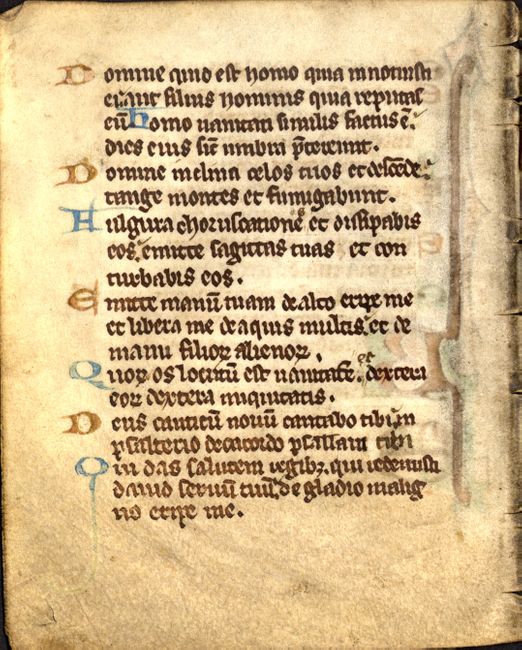 Domine quid est homo quia innotuisti
ei aut filius hominis quia reputas
eū Homo uanitati similis factus ē
dies eius sic̄ umbra p̄tereunt.
Domine inclina celos tuos et descēde
tange montes et fumigabunt.
Fulgura choruscationē et dissipabis
eos emitte sagittas tuas et con
turbabis eos.
Emitte manū tuam de alto eripe me
et libera me de aquis multis et de
manu filioꝝ alienoꝝ.
Quoꝝ os locutū est uanitatē et dextera
eoꝝ dextera iniquitatis.
Deus canticū nouū cantabo tibi in
psalterio decacordo psallam tibi
Qui das salutem regibꝫ qui redemisti
dauid seruū tuū de gladio malig
no eripe me.